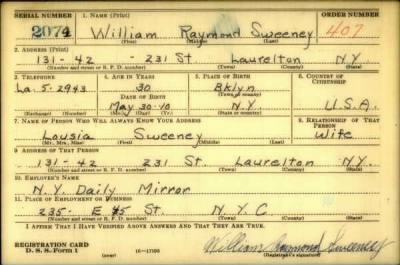 SERIAL NUMBER 1. NAME (Print) ORDER NUMBER
2074 William Raymond Sweeney 407
(First) (Middle) (Last)
2. ADDRESS (Print)
131-42 - 231 St. Laurelton N.Y.
(Number and street or R. F. D. number) (Town) (County) (State)
3. TELEPHONE 4. AGE IN YEARS 5. PLACE OF BIRTH 6. COUNTRY OF CITIZENSHIP
La. 5-2943 30 Bklyn
DATE OF BIRTH (Town or county)
May 30-10 N.Y. U.S.A.
(Exchange) (Number) (Mo.) (Day) (Yr.) (State or country)
7. NAME OF PERSON WHO WILL ALWAYS KNOW YOUR ADDRESS 8. RELATIONSHIP OF THAT PERSON
Lousia Sweeney Wife
(Mr., Mrs., Miss) (First) (Middle) (Last)
9. ADDRESS OF THAT PERSON
131-42 231 St. Laurelton N.Y.
(Number and street or R. F. D. number) (Town) (County) (State)
10. EMPLOYER'S NAME
N.Y. Daily Mirror
11. PLACE OF EMPLOYMENT OR BUSINESS
235- E 45 St. N.Y.C
(Number and street or R. F. D. number) (Town) (County) (State)
I AFFIRM THAT I HAVE VERIFIED ABOVE ANSWERS AND THAT THEY ARE TRUE.
REGISTRATION CARD
D. S. S. Form 1 (over) 16-17105 William Raymond Sweeney
(Registrant's signature)